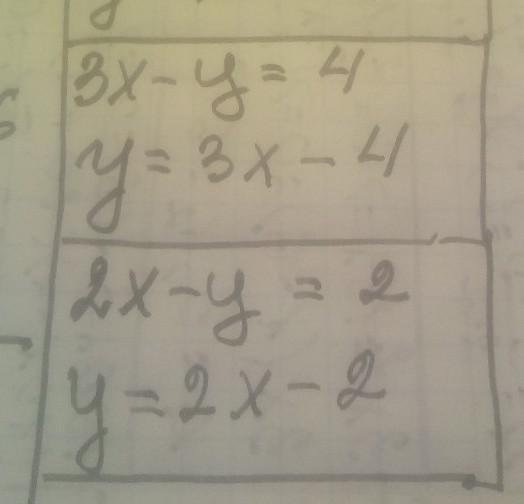 3x - y = 4
y = 3x - 4
2x - y = 2
y = 2x - 2